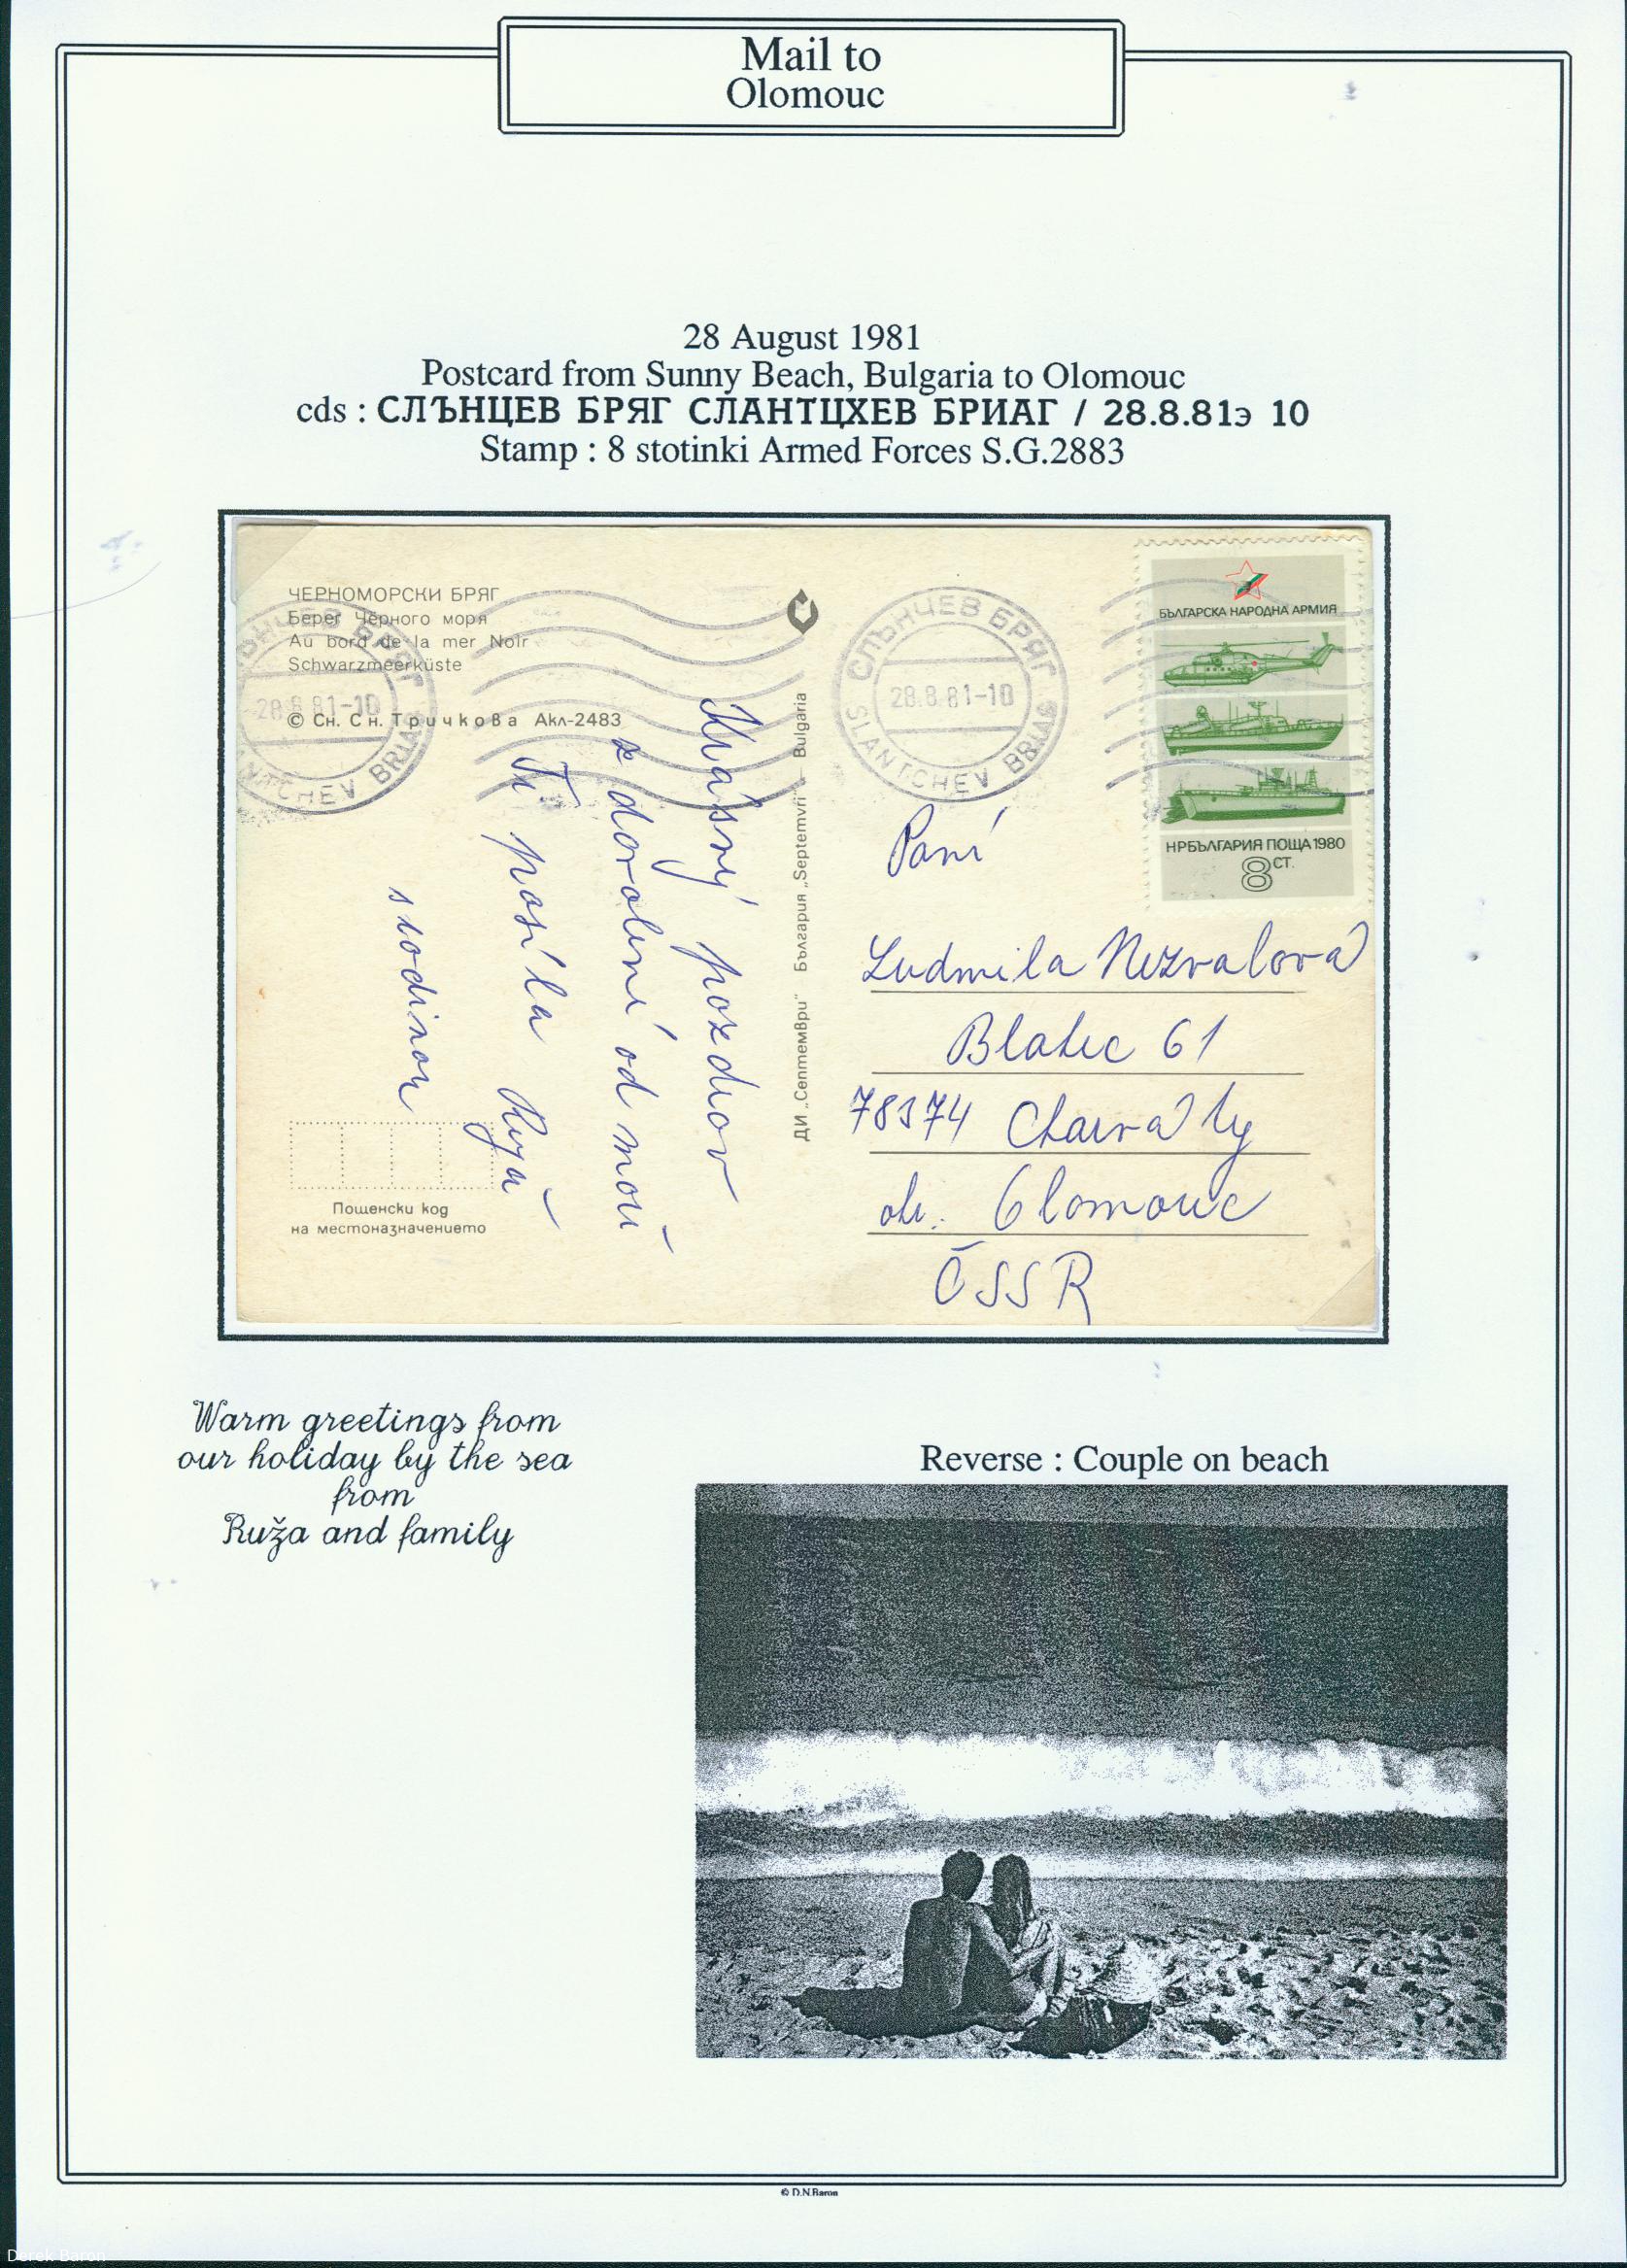 Mail to
Olomouc
28 August 1981
Postcard from Sunny Beach, Bulgaria to Olomouc
cds : СЛЪНЦЕВ БРЯГ СЛАНТЦХЕВ БРИАГ / 28.8.81э 10
Stamp : 8 stotinki Armed Forces S.G.2883
ЧЕРНОМОРСКИ БРЯГ
Берег Чёрного моря
Au bord de la mer Noir
Schwarzmeerküste
© Сн. Сн. Тричкова Акл-2483
ЪНЦЕВ БРЯГ
28.8.81-10
NTCHEV BRIAG
Krásný pozdrav
z dovolení od moř
Ti posíla Ruža
s rodinou
Пощенски код
на местоназначението
ДИ „Септември" България „Septemvri" – Bulgaria
СЛЪНЧЕВ БРЯГ
28.8.81-10
SLANTCHEV BRIAG
БЪЛГАРСКА НАРОДНА АРМИЯ
НРБЪЛГАРИЯ ПОЩА 1980
8 СТ.
Paní
Ludmila Nezvalová
Blatec 61
78374 Charváty
ok. Olomouc
ČSSR
Warm greetings from
our holiday by the sea
from
Ruža and family
Reverse : Couple on beach
© D.N.Baron
Derek Baron